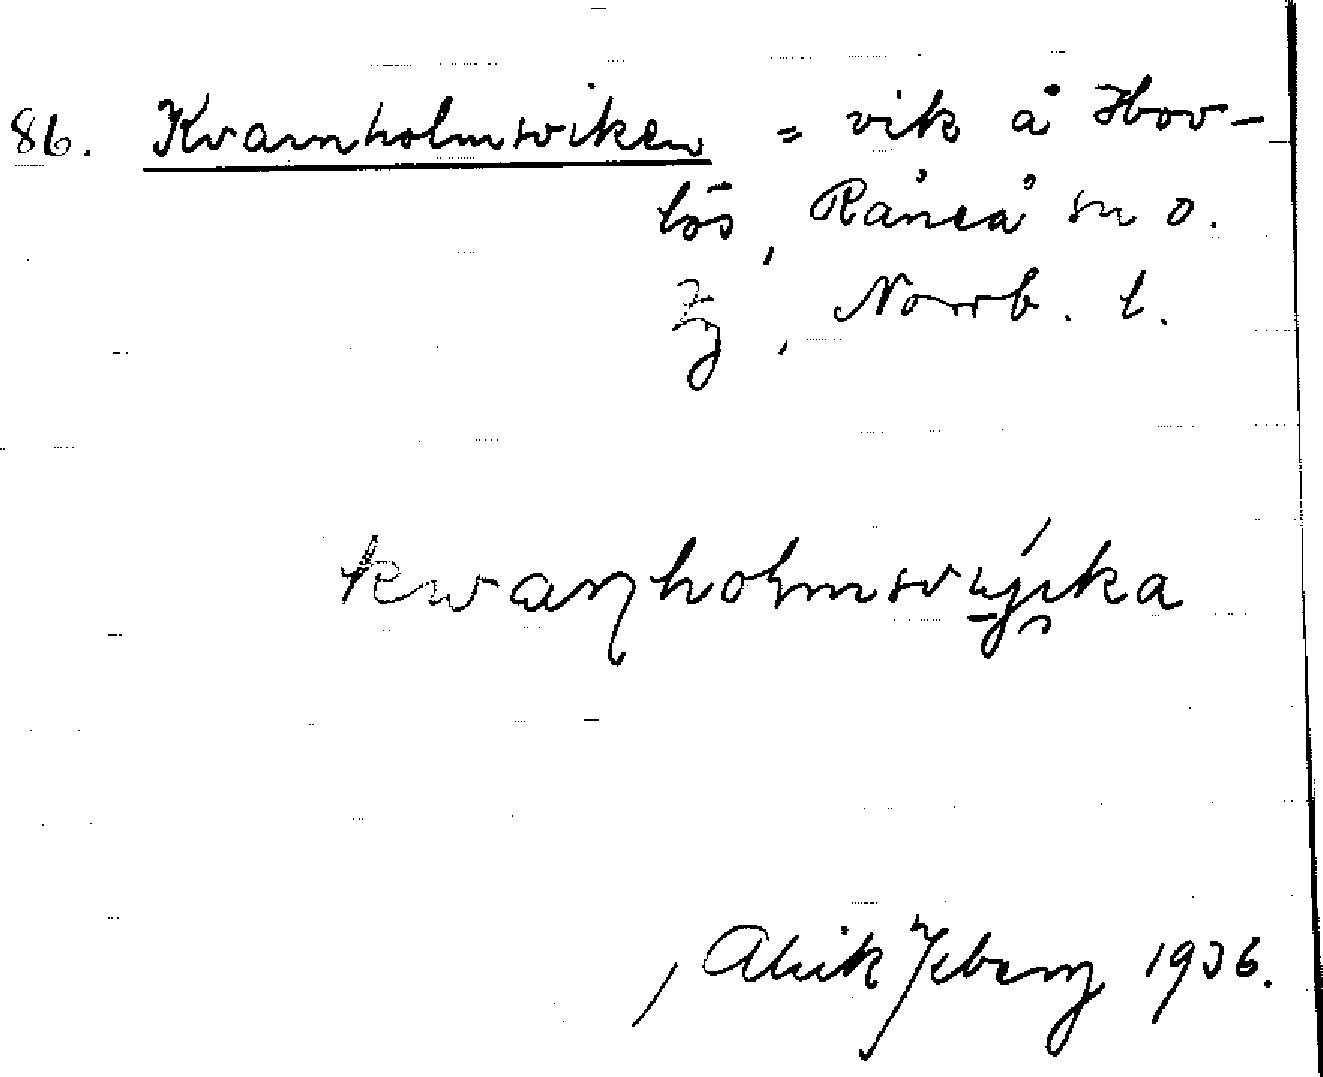 86. Kvarnholmsviken = vik å Hov-
lös, Råneå sn o.
tg, Norrb. l.
kwaṇholmsvıjka
Alrik Ysberg 1936.